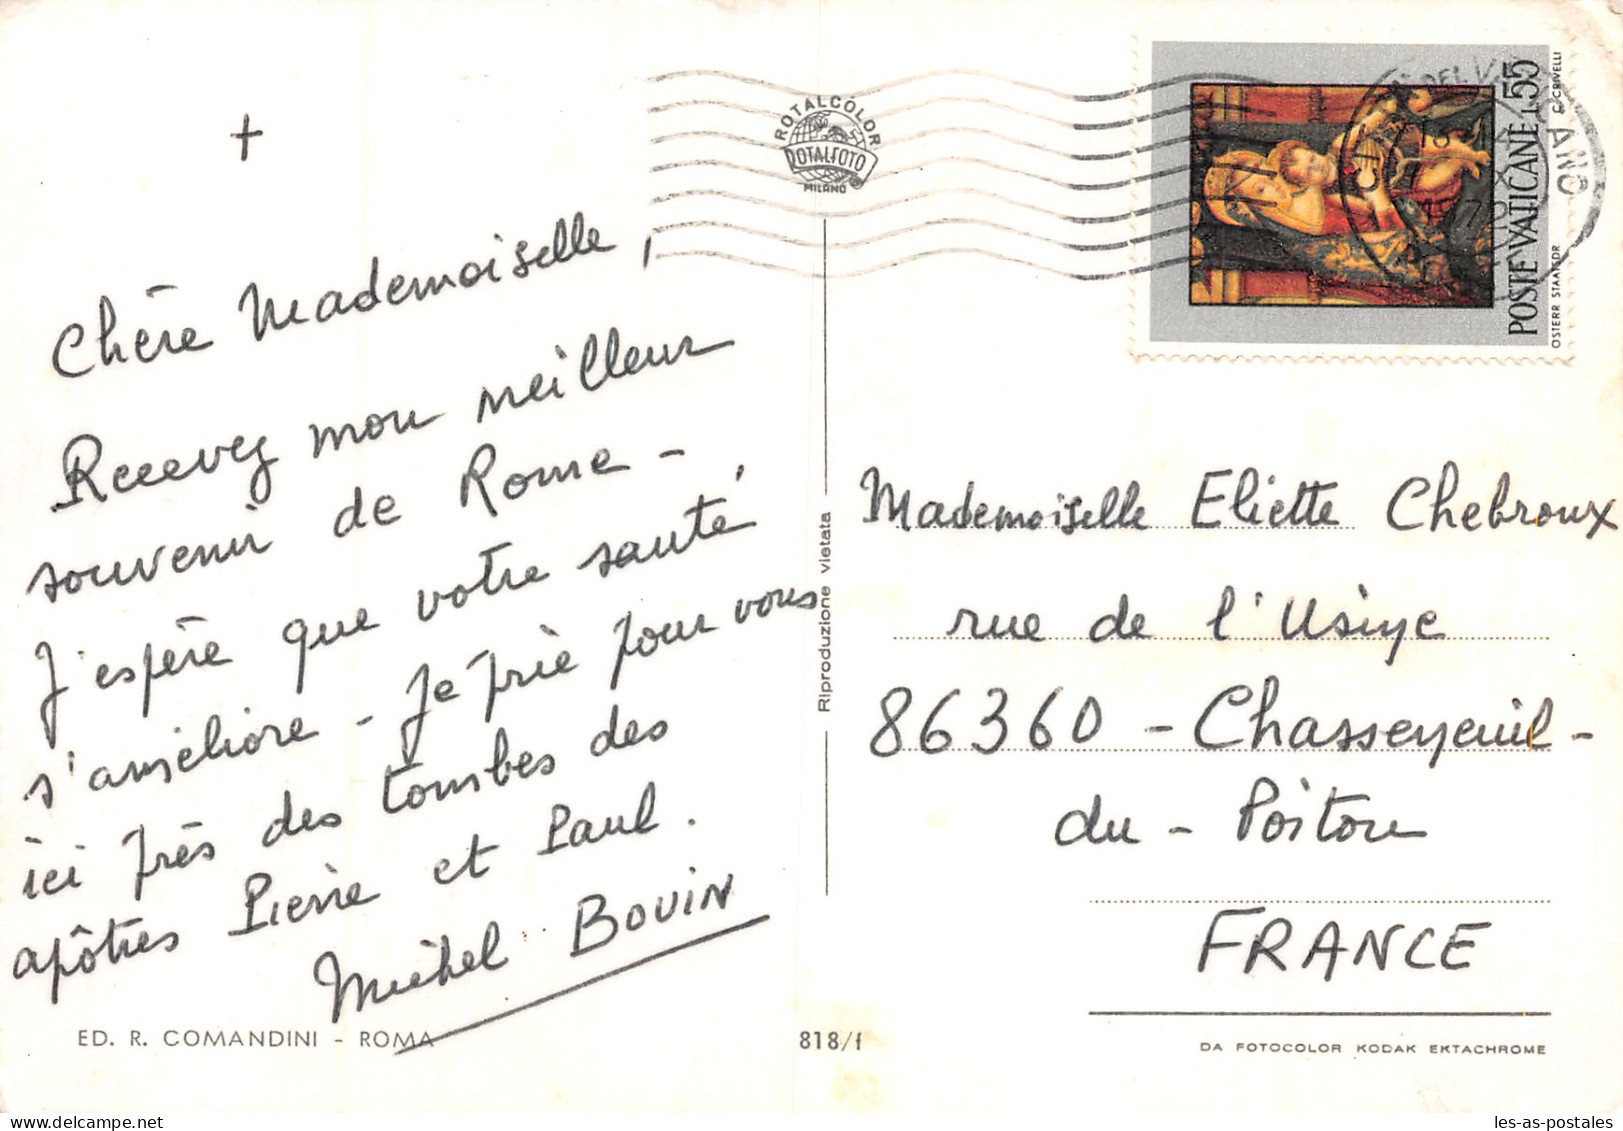 †
Chère Mademoiselle,
Recevez mon meilleur
souvenir de Rome -
J'espère que votre santé,
s'améliore - Je prie pour vous
ici près des tombes des
apôtres Pierre et Paul.
Michel BOUIN
ED. R. COMANDINI - ROMA
ROTALCOLOR
ROTALFOTO
MILANO
Riproduzione vietata
818/f
POSTE VATICANE L.55
C. CRIVELLI
OSTERR STAATSDR
Mademoiselle Eliette Chebroux
rue de l'Usine
86360 - Chasseneuil -
du - Poitou
FRANCE
DA FOTOCOLOR KODAK EKTACHROME
les-as-postales